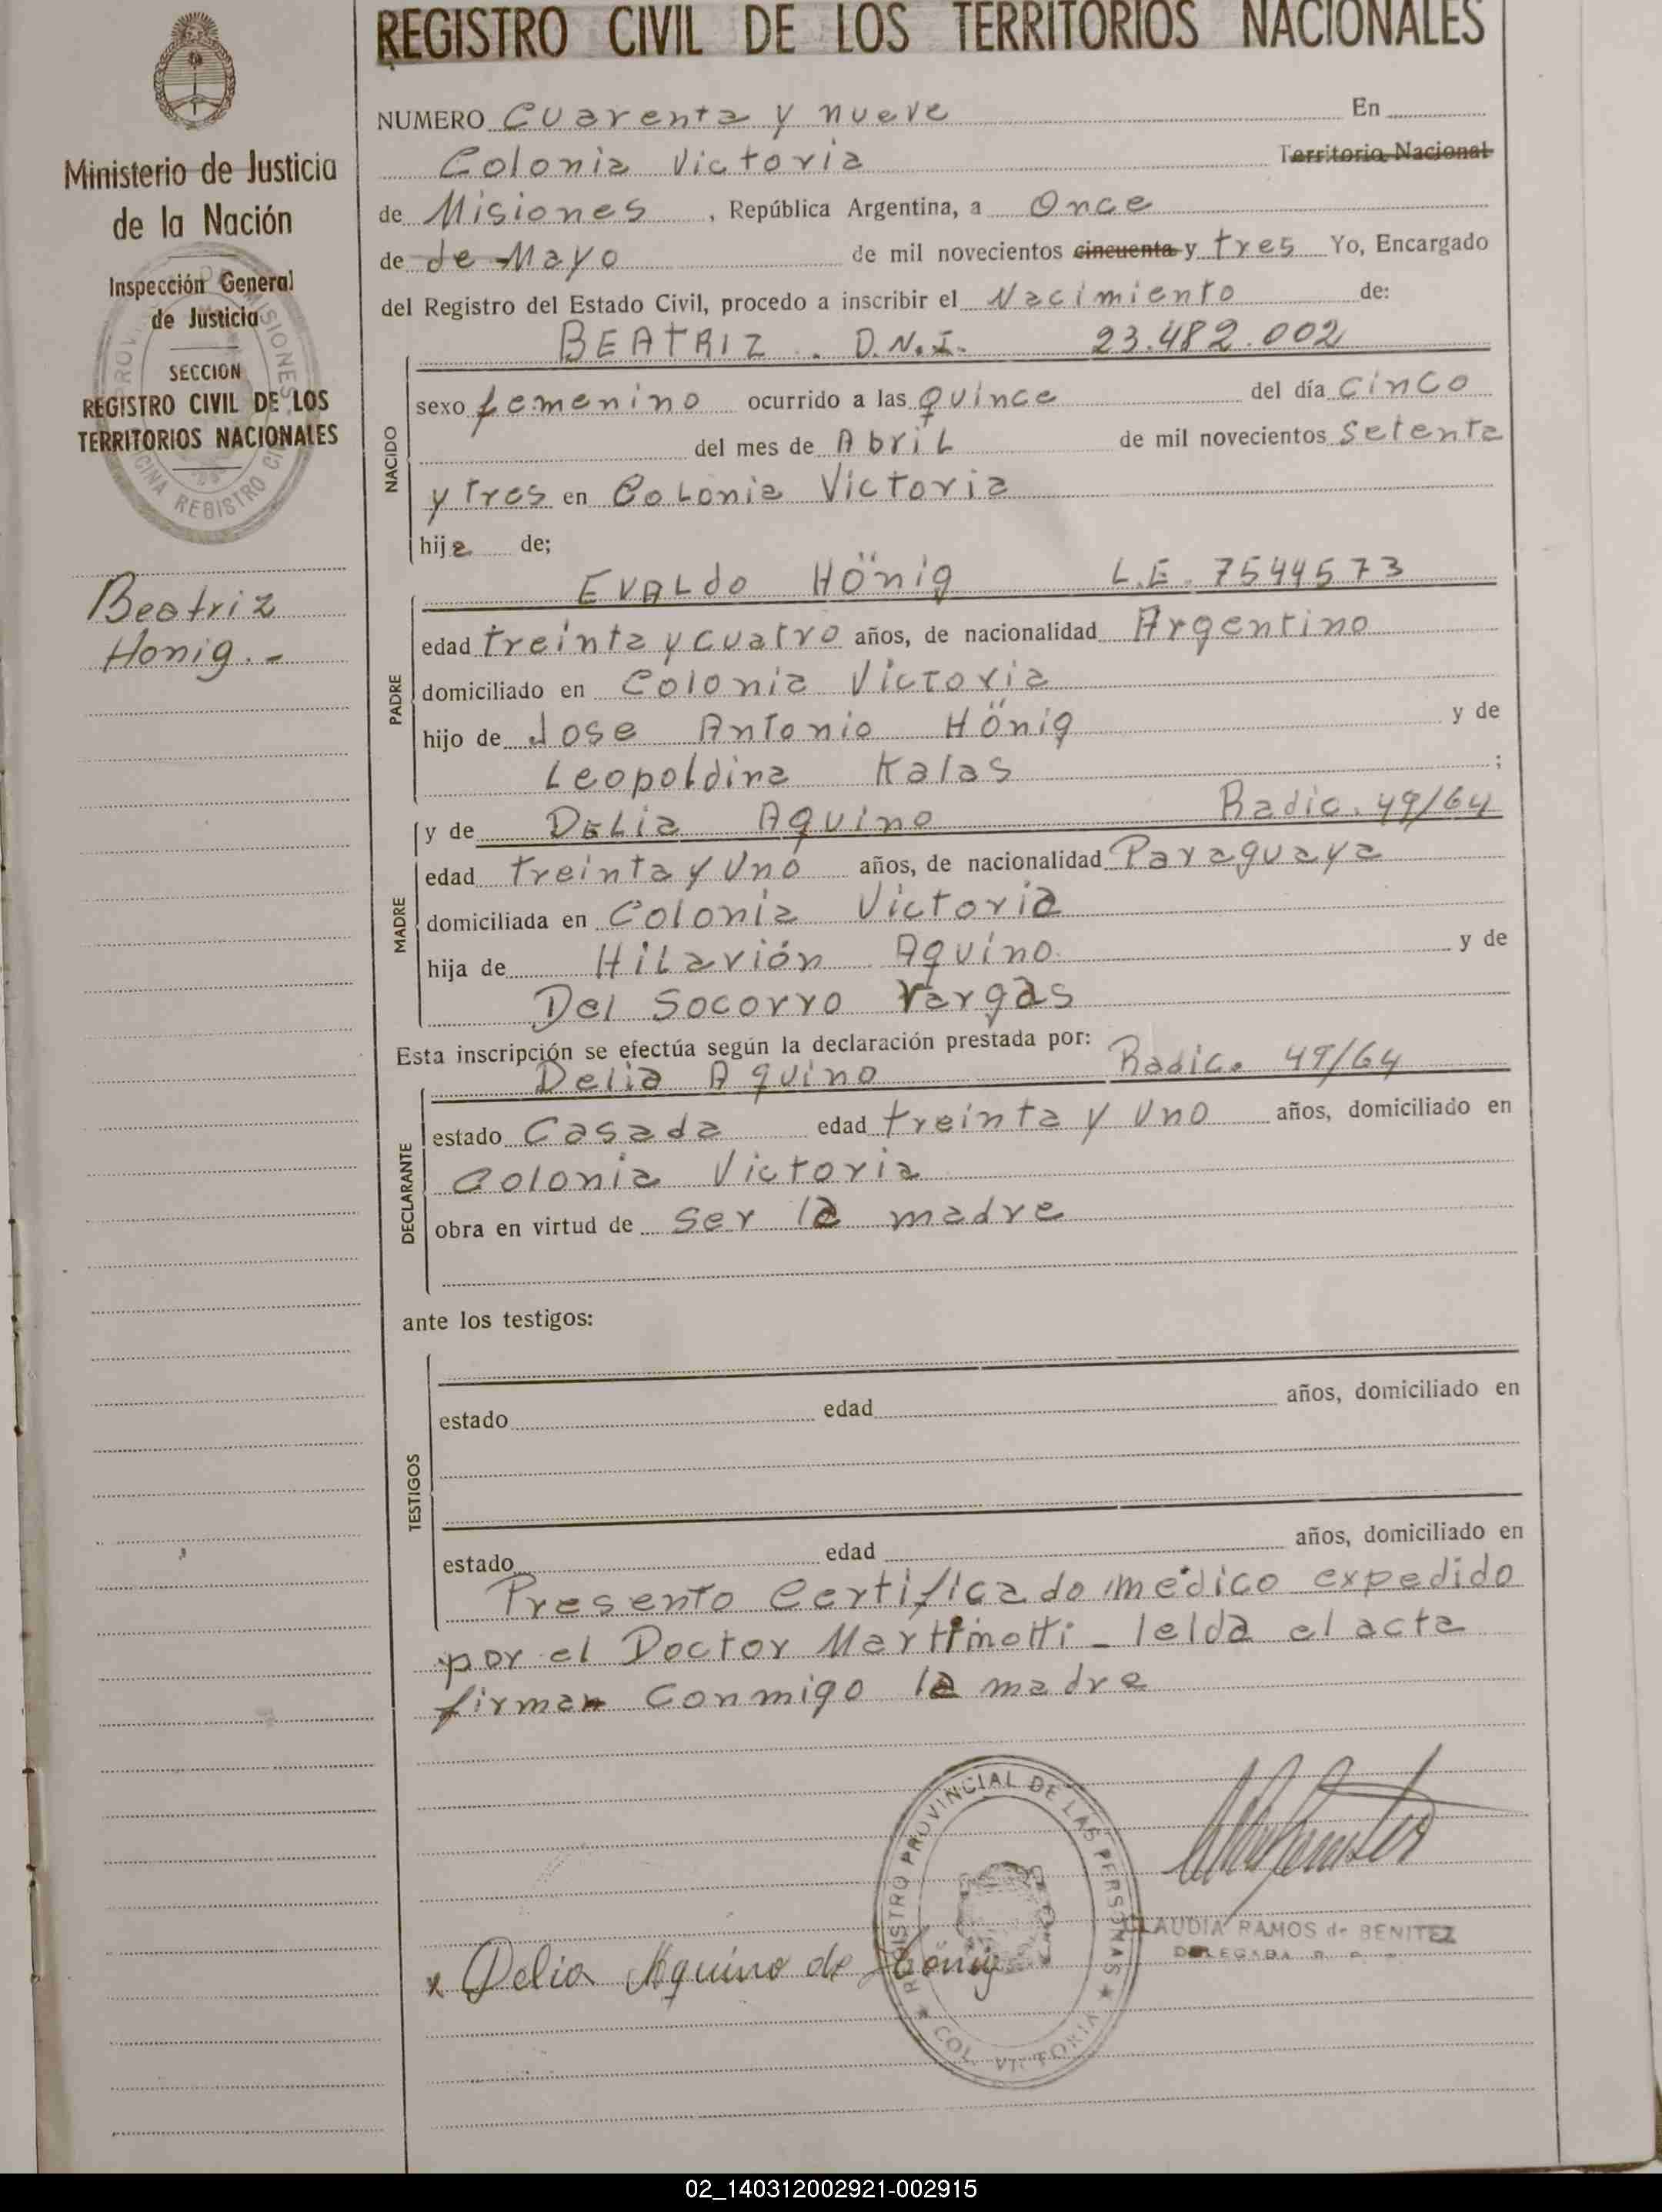 REGISTRO CIVIL DE LOS TERRITORIOS NACIONALES
Ministerio de Justicia
de la Nación
Inspección General
de Justicia
SECCION
REGISTRO CIVIL DE LOS
TERRITORIOS NACIONALES
Beatriz
Honig.-
NUMERO Cuarenta y nueve En
Colonia Victoria Territorio Nacional
de Misiones, República Argentina, a Once
de de Mayo de mil novecientos cincuenta y tres Yo, Encargado
del Registro del Estado Civil, procedo a inscribir el Nacimiento de:
BEATRIZ . D.N.I. 23.482.002
NACIDO
sexo femenino ocurrido a las quince del día cinco
del mes de Abril de mil novecientos setenta
y tres en Colonia Victoria
hija de;
PADRE
EVALDO Hönig L.E. 7544573
edad treinta y cuatro años, de nacionalidad Argentino
domiciliado en Colonia Victoria
hijo de Jose Antonio Hönig y de
Leopoldina Kalas ;
MADRE
y de DELIA Aquino Radic. 49/64
edad treinta y uno años, de nacionalidad Paraguaya
domiciliada en Colonia Victoria
hija de Hilarión Aquino y de
Del Socorro Vargas
Esta inscripción se efectúa según la declaración prestada por:
Delia Aquino Radic. 49/64
DECLARANTE
estado Casada edad treinta y uno años, domiciliado en
Colonia Victoria
obra en virtud de ser la madre
ante los testigos:
TESTIGOS
estado edad años, domiciliado en
estado edad años, domiciliado en
Presento certificado médico expedido
por el Doctor Martimotti - leida el acta
firman conmigo la madre
REGISTRO PROVINCIAL DE LAS PERSONAS
COL. VICTORIA
CLAUDIA RAMOS de BENITEZ
DELEGADA
x Delia Aquino de Hönig
02_140312002921-002915